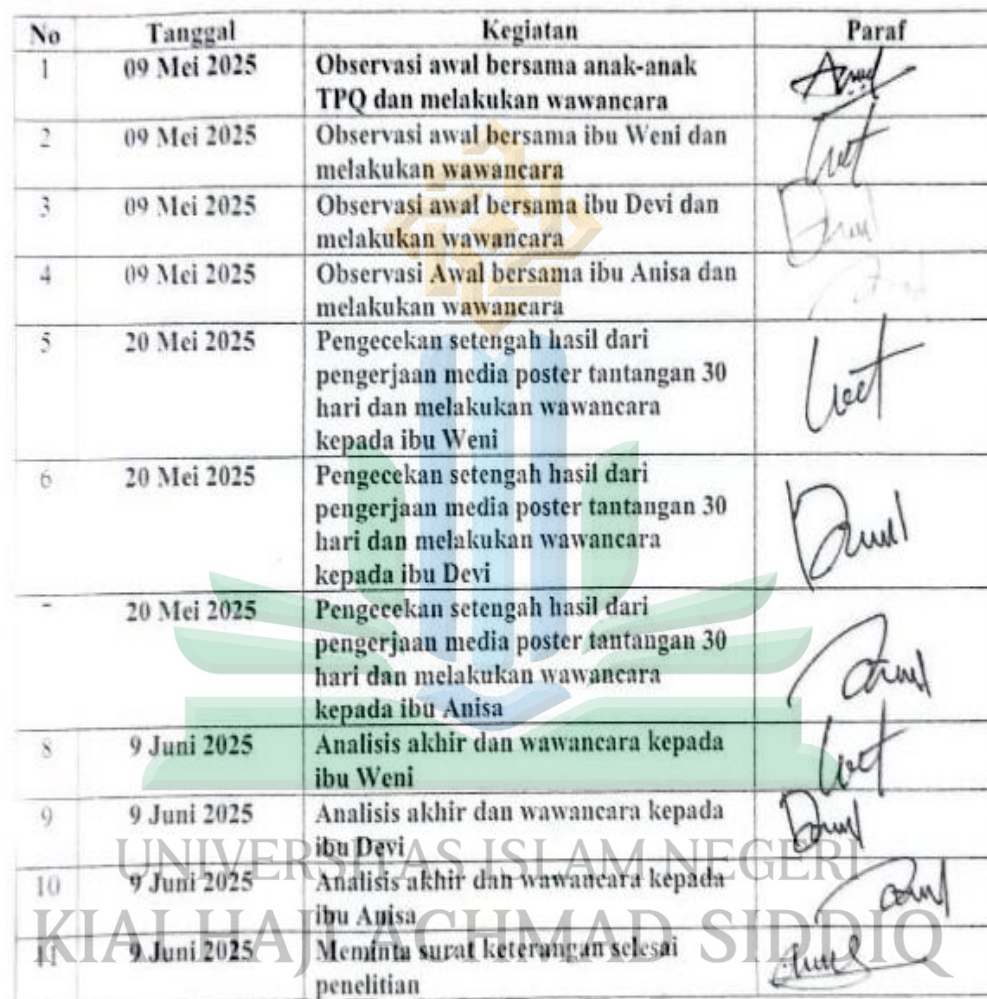 No Tanggal Kegiatan Paraf
1 09 Mei 2025 Observasi awal bersama anak-anak
TPQ dan melakukan wawancara
2 09 Mei 2025 Observasi awal bersama ibu Weni dan
melakukan wawancara
3 09 Mei 2025 Observasi awal bersama ibu Devi dan
melakukan wawancara
4 09 Mei 2025 Observasi Awal bersama ibu Anisa dan
melakukan wawancara
5 20 Mei 2025 Pengecekan setengah hasil dari
pengerjaan media poster tantangan 30
hari dan melakukan wawancara
kepada ibu Weni
6 20 Mei 2025 Pengecekan setengah hasil dari
pengerjaan media poster tantangan 30
hari dan melakukan wawancara
kepada ibu Devi
20 Mei 2025 Pengecekan setengah hasil dari
pengerjaan media poster tantangan 30
hari dan melakukan wawancara
kepada ibu Anisa
8 9 Juni 2025 Analisis akhir dan wawancara kepada
ibu Weni
9 9 Juni 2025 Analisis akhir dan wawancara kepada
ibu Devi
10 9 Juni 2025 Analisis akhir dan wawancara kepada
ibu Anisa
11 9 Juni 2025 Meminta surat keterangan selesai
penelitian
UNIVERSITAS ISLAM NEGERI
KIAI HAJI ACHMAD SIDDIQ